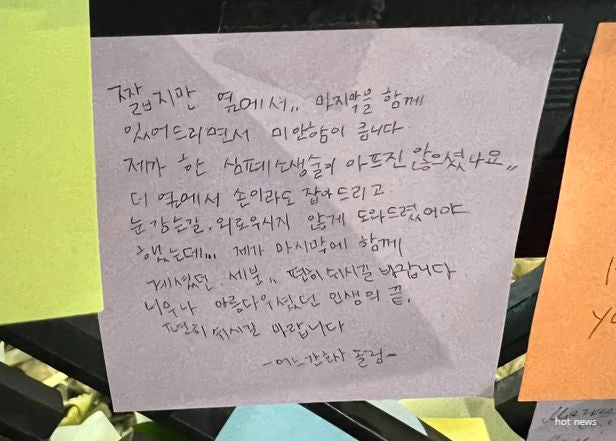 짧지만 옆에서,, 마지막을 함께
있어드리면서 미안함이 큽니다.
제가 한 심폐소생술이 아프진 않으셨나요,,
더 옆에서 손이라도 잡아드리고
눈감는길, 외로우시지 않게 도와드렸어야
했는데... 제가 마지막에 함께
계셨던 세분,, 편히쉬시길 바랍니다.
너무나 아름다우셨던 인생의 끝,
편히쉬시길 바랍니다
-어느간호사 올림-
hot news